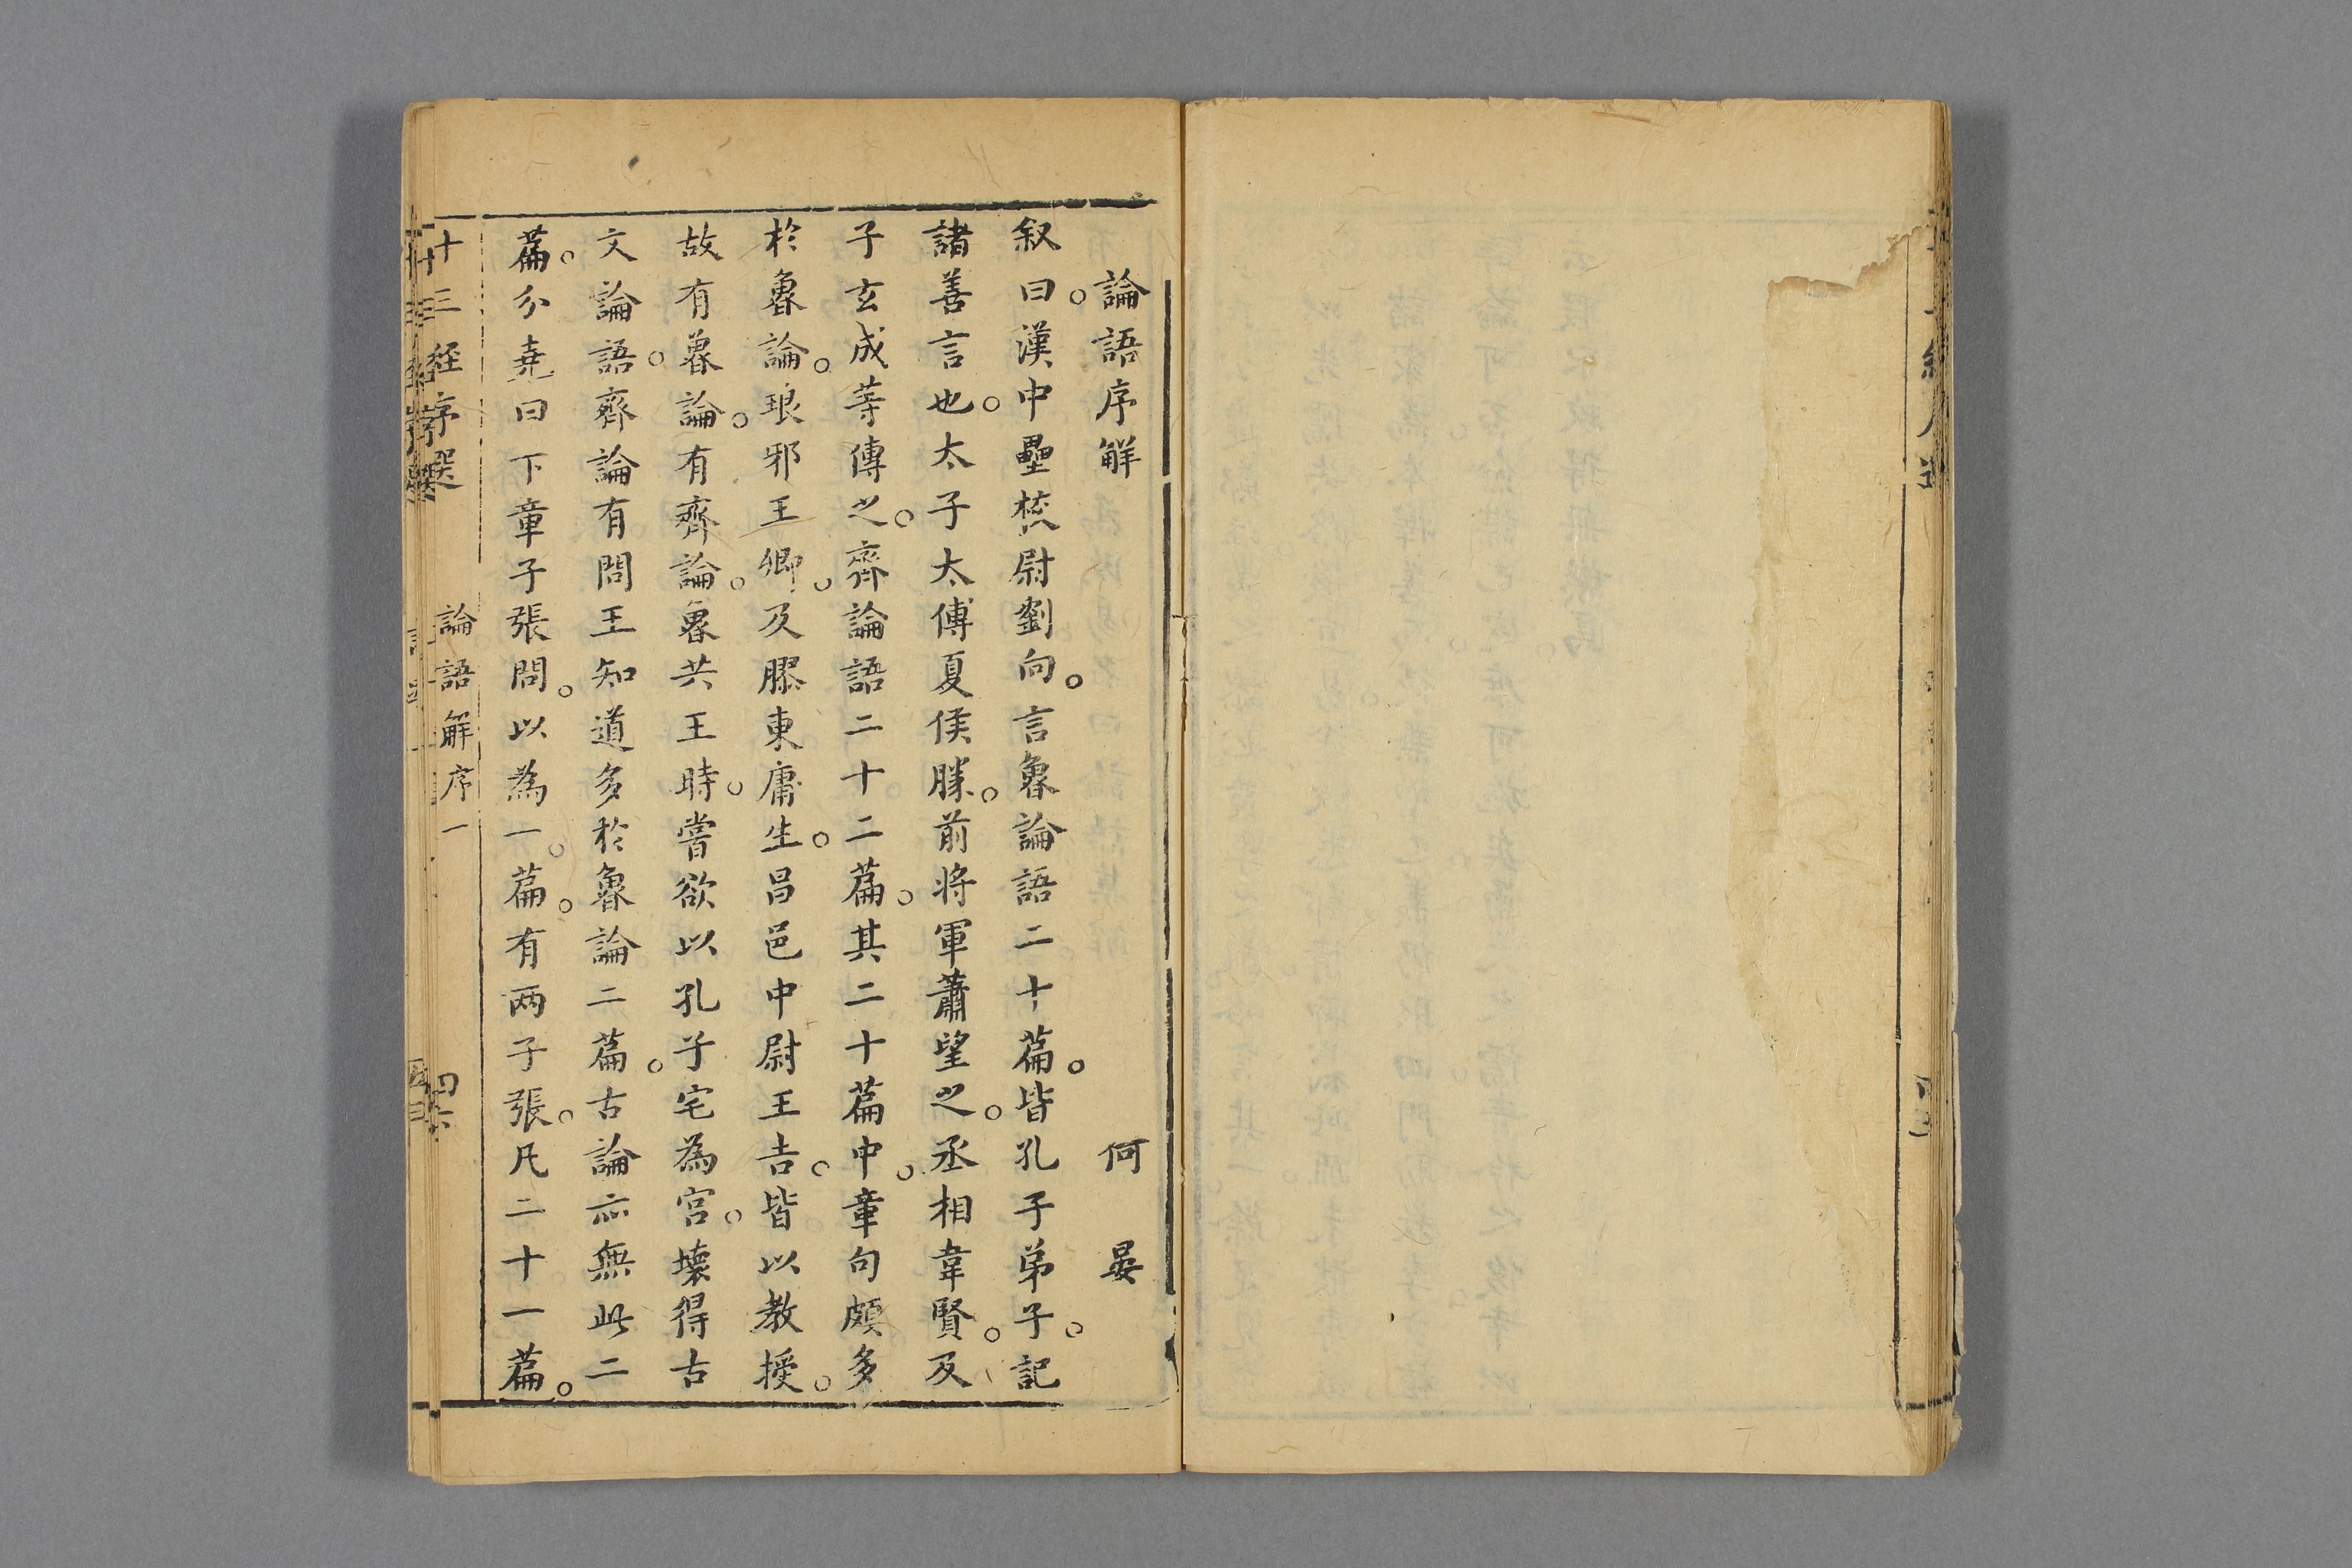 論語序解 何晏
叙曰。漢中壘校尉劉向。言魯論語二十篇。皆孔子弟子。記
諸善言也。太子太傅夏侯勝。前将軍蕭望之。丞相韋賢。及
子玄成等傳之。齊論語二十二篇。其二十篇中。章句頗多
於魯論。琅邪王卿。及膠東庸生。昌邑中尉王吉。皆以教授。
故有魯論。有齊論。魯共王時。嘗欲以孔子宅為宮。壞得古
文論語。齊論有問王知道多於魯論二篇。古論亦無此二
篇。分堯曰下章子張問。以為一。篇。有两子張。凡二十一篇。
十三経序選 論語解序一 四六